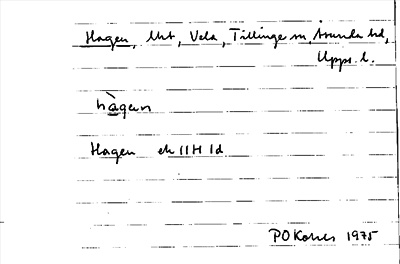 Hagen, Urt, Vela, Tillinge sn, Åsunda hd,
Upps. l.
hàgen
Hagen ek 11H 1d
1975